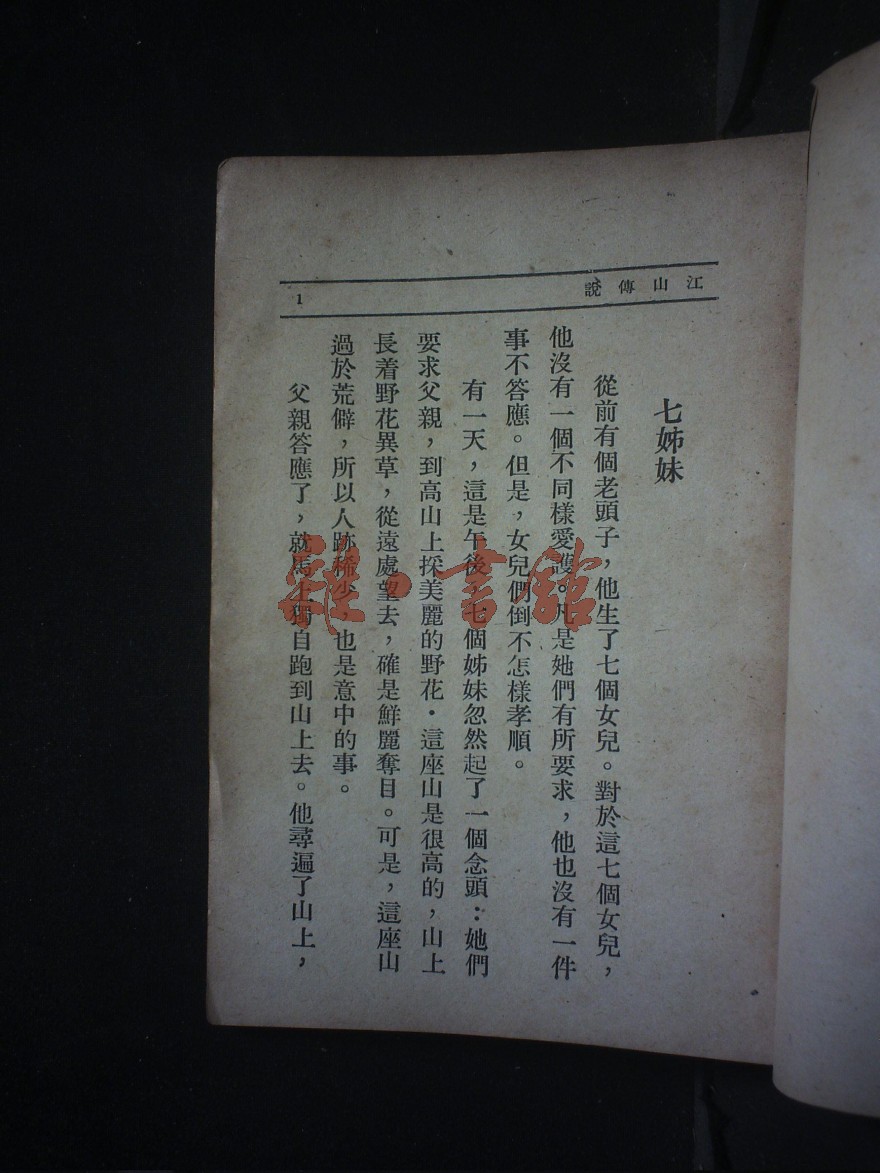 江山傳說
1
七姊妹
從前有個老頭子，他生了七個女兒。對於這七個女兒，
他沒有一個不同樣愛護。凡是她們有所要求，他也沒有一件
事不答應。但是，女兒們倒不怎樣孝順。
有一天，這是午後，七個姊妹忽然起了一個念頭：她們
要求父親，到高山上採美麗的野花．這座山是很高的，山上
長着野花異草，從遠處望去，確是鮮麗奪目。可是，這座山
過於荒僻，所以人跡稀少，也是意中的事。
父親答應了，就馬上獨自跑到山上去。他尋遍了山上，
雜·書館